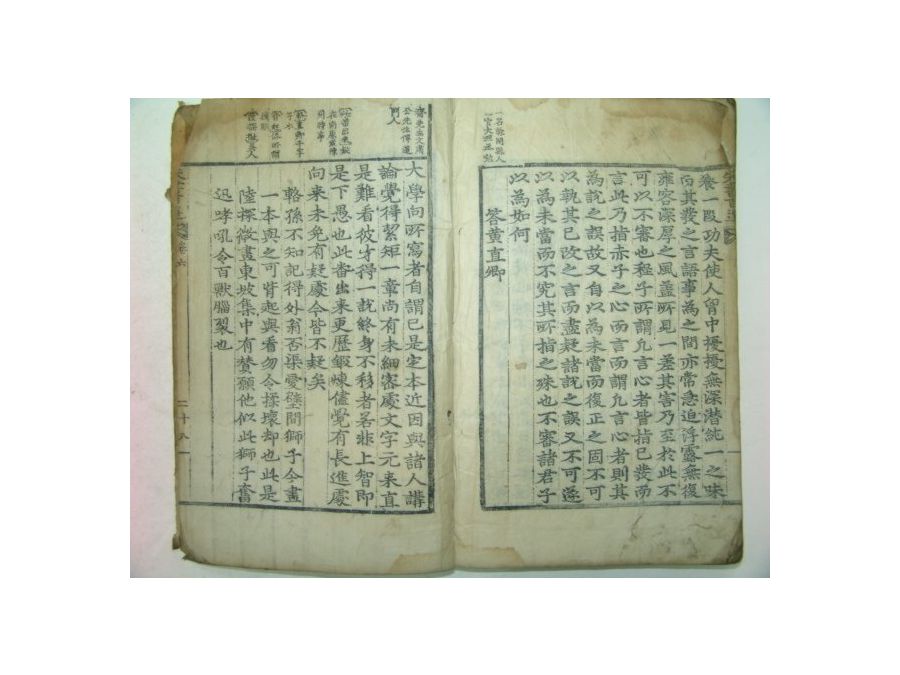 養一段功夫使人胷中擾擾無深潜純一之味
而其發之言語事為之間亦常急迫浮露無復
雍容深厚之風盖所見一差其害乃至於此不
可以不審也程子所謂凡言心者皆指已發而
言此乃指赤子之心而言而謂凡言心者則其
為說之誤故又自以為未當而復正之固不可
以執其已改之言而盡疑諸說之誤又不可遂
以為未當而不究其所指之殊也不審諸君子
以為如何
答黄直卿
大學向所寫者自謂已是定本近因與諸人講
論覺得絜矩一章尚有未細密處文字元来直
是難看彼才得一說終身不移者若非上智即
是下愚也此番出来更歷鍛煉儘覺有長進處
向来未免有疑處今皆不疑矣
輅孫不知記得外翁否渠愛壁間獅子今畫
一本與之可背起與看勿令揉壞却也此是
陸探微畫東坡集中有賛願他似此獅子奮
迅哮吼令百獸腦裂也
卷六
二十八